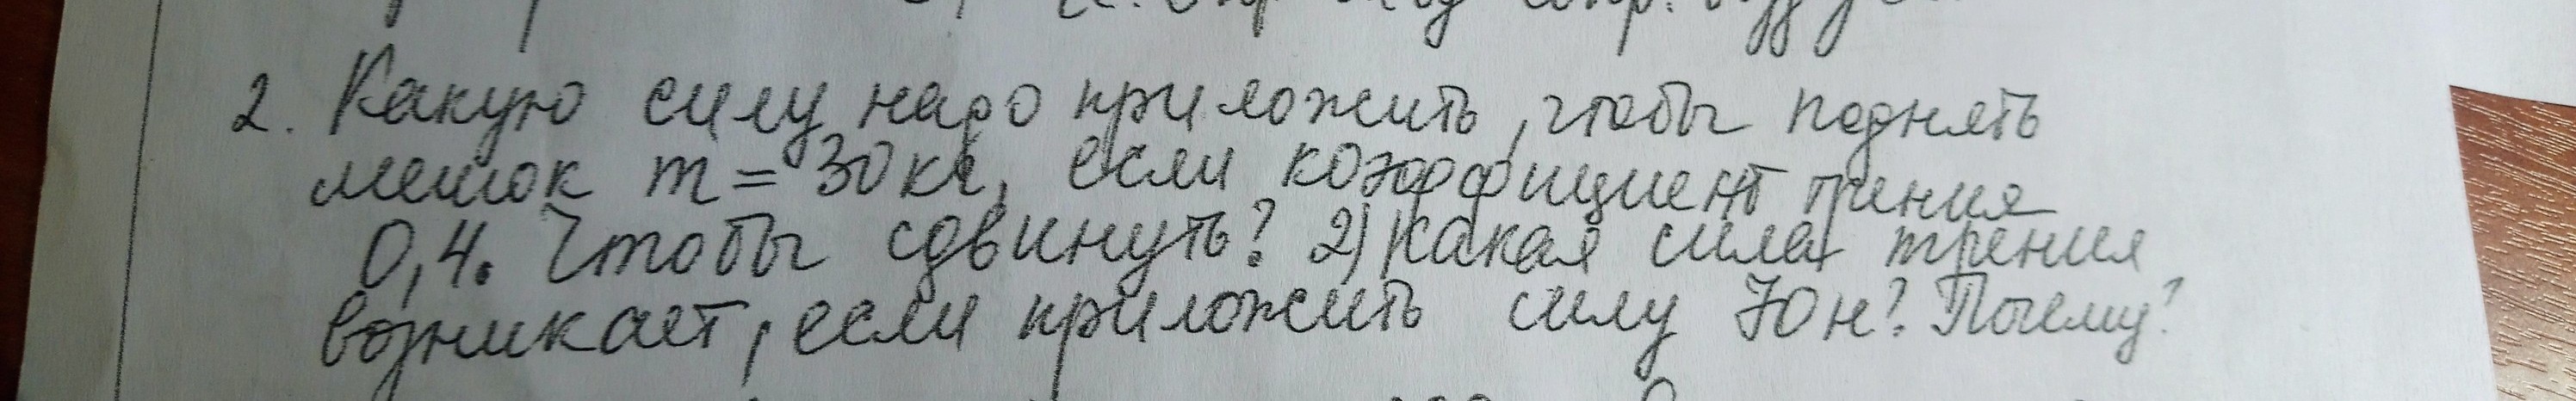 2. Какую силу надо приложить, чтобы поднять
мешок m = 30 кг, если коэффициент трения
0,4. Чтобы сдвинуть? 2) Какая сила трения
возникает, если приложить силу 70 н? Почему?